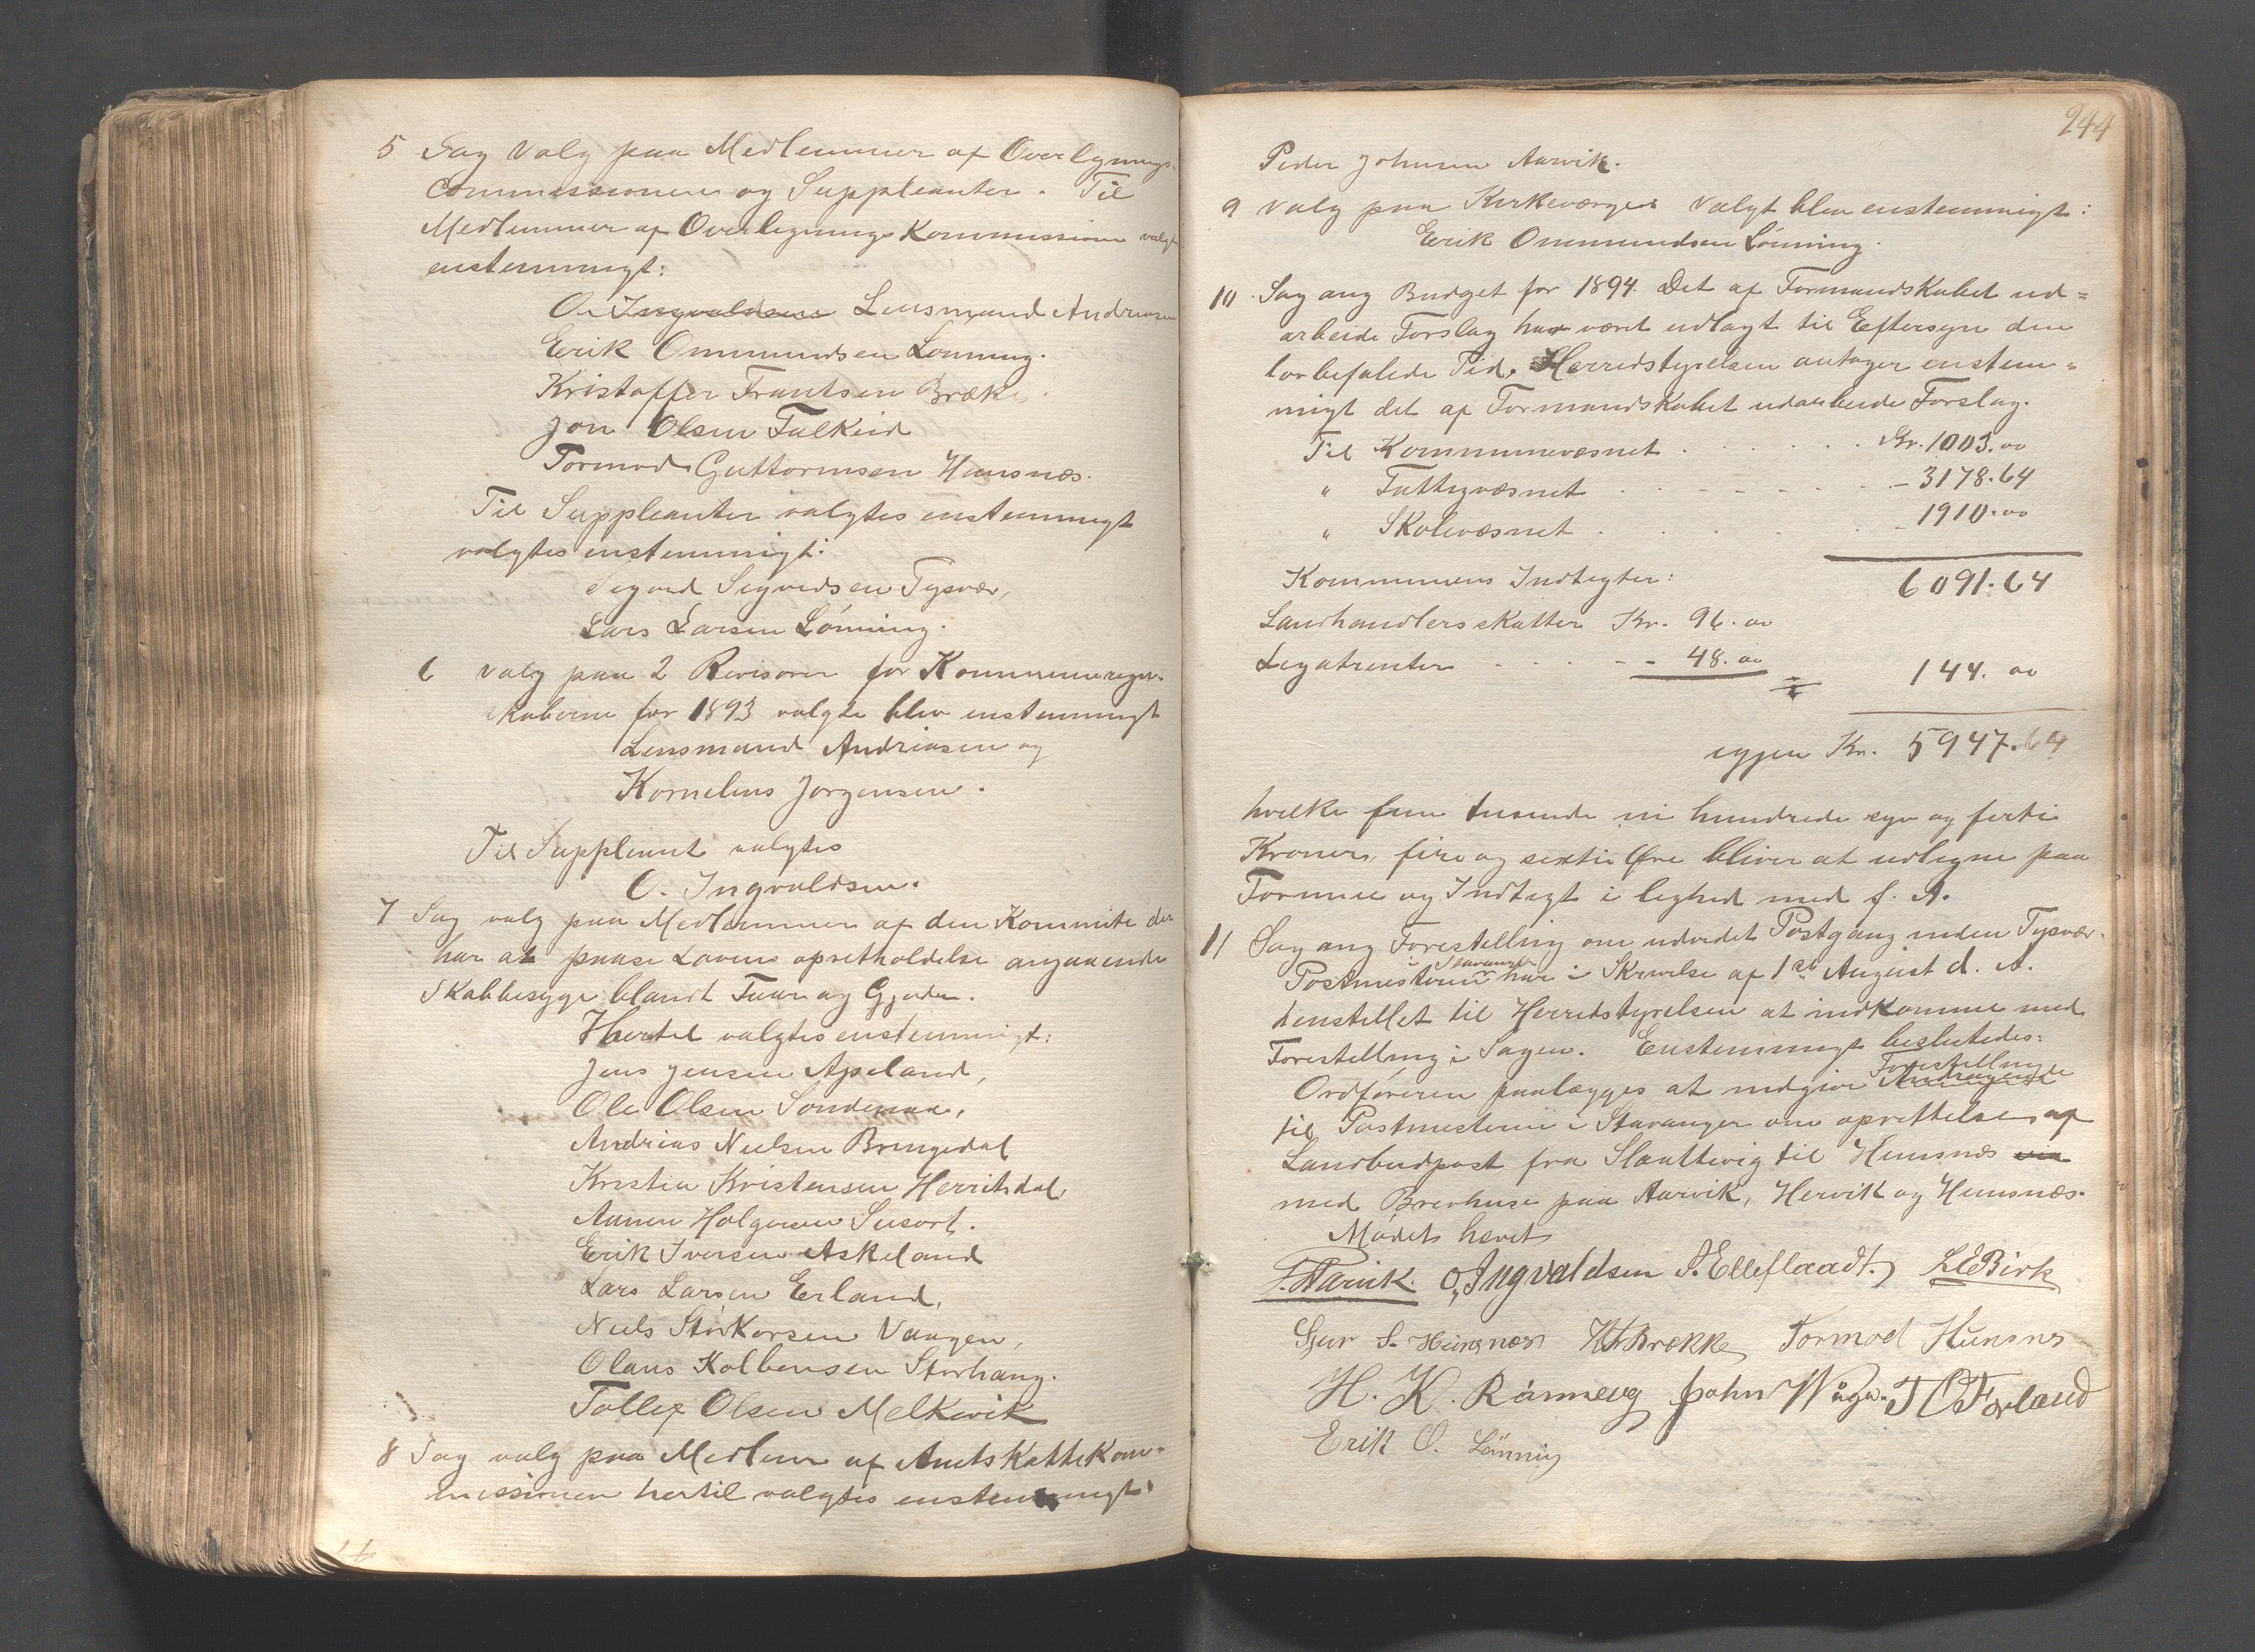 5 Sag valg paa Medlemmer af Overlignings-
Commissionen og Suppleanter. Til
Medlemmer af Overlignings Kommissionen valgtes
enstemmigt:
O. Ingvaldsen Lensmand Andreasen
Erik Ommundsen Lønning.
Kristoffer Frantsen Brække.
Jon Olsen Falkeid
Tormod Guttormsen Hunsnæs.
Til Suppleanter valgtes enstemmigt
valgtes enstemmigt:
Sigvard Sigvardsen Tysvær,
Lars Larsen Lønning.
6 Valg paa 2 Revisorer for Kommuneregn-
skaberne for 1893 valgte blev enstemmigt
Lensmand Andreasen og
Kornelius Jørgensen.
Til Suppleant valgtes
O. Ingvaldsen.
7 Sag valg paa Medlemmer af den Kommite der
har at paase Lovens opretholdelse angaaende
Skabbesyge blandt Faar og Gjeder.
Hertil valgtes enstemmigt:
Jens Jensen Apeland,
Ole Olsen Søndenaa,
Andreas Nielsen Bringedal
Kristen Kristensen Herritsdal,
Aanen Holgersen Susort.
Erik Iversen Askeland
Lars Larsen Erland,
Niels Storkorsen Vaagen,
Olaus Kolbensen Storhaug.
Tollef Olsen Melkevik
8 Sag valg paa Medlem af Amtskattekom-
missionen hertil valgtes enstemmigt
244
Peder Johnsen Aarvik.
9 Valg paa Kirkeværger Valgt blev enstemmigt:
Erik Ommundsen Lønning.
10 Sag ang Budget for 1894. Det af Formandskabet ud=
arbeide Forslag har været udlagt til Eftersyn den
lovbefalede Tid. Herredstyrelsen antager enstem=
migt det af Formandskabet udarbeide Forslag.
Til Kommunevæsnet . . . . . Kr. 1003.00
" Fattigvæsnet . - - - - - 3178.64
" Skolevæsnet . . . . - 1910.00
6091.64
Kommunens Indtegter:
Landhandlersskatter Kr. 96.00
Legatrenter - - - - - 48.00 ÷ 144.00
igjen Kr. 5947.64
hvilke fem tusende ni hundrede syv og førti
Kroner, fire og sexti Øre bliver at udligne paa
Formue og Indtegt i lighed med f. A.
11 Sag ang Forestelling om udvidet Postgang inden Tysvær.
i Stavanger
Postmesteren har i Skrivelse af 1ste August d. A.
henstillet til Herredstyrelsen at indkomme med
Forestelling i Sagen. Enstemmigt besluttedes:
Forestelling
Ordføreren paalægges at indgive Andragende
til Postmesteren i Stavanger om oprettelse af
Landbudpost fra Slaattevig til Hunsnæs via
med Brevhuse paa Aarvik, Hervik og Hunsnæs.
Mødet hævet
P. Aarvik. O, Ingvaldsen S. Elleflaadt. L E Birk
Gjer S. Hunsnæs K Fr Brække Tormod Hunsnes
H. K. Rånneng John Wåge. T O Førland
Erik O. Lönning